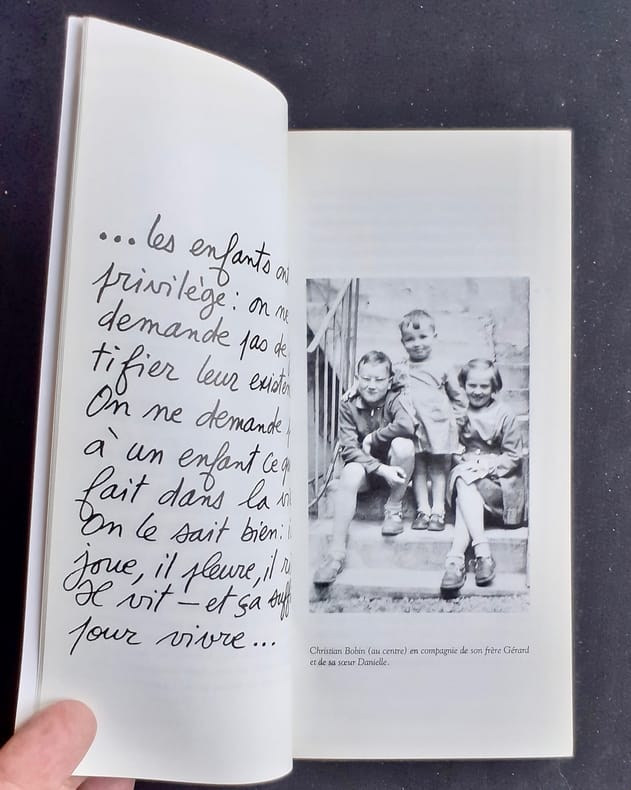 ... les enfants
privilège : on ne
demande pas de
tifier leur
On ne demande
à un enfant ce
fait dans la
On le sait bien :
joue, il pleure, il
Il vit – et ça
pour vivre ...
Christian Bobin (au centre) en compagnie de son frère Gérard
et de sa sœur Danielle.